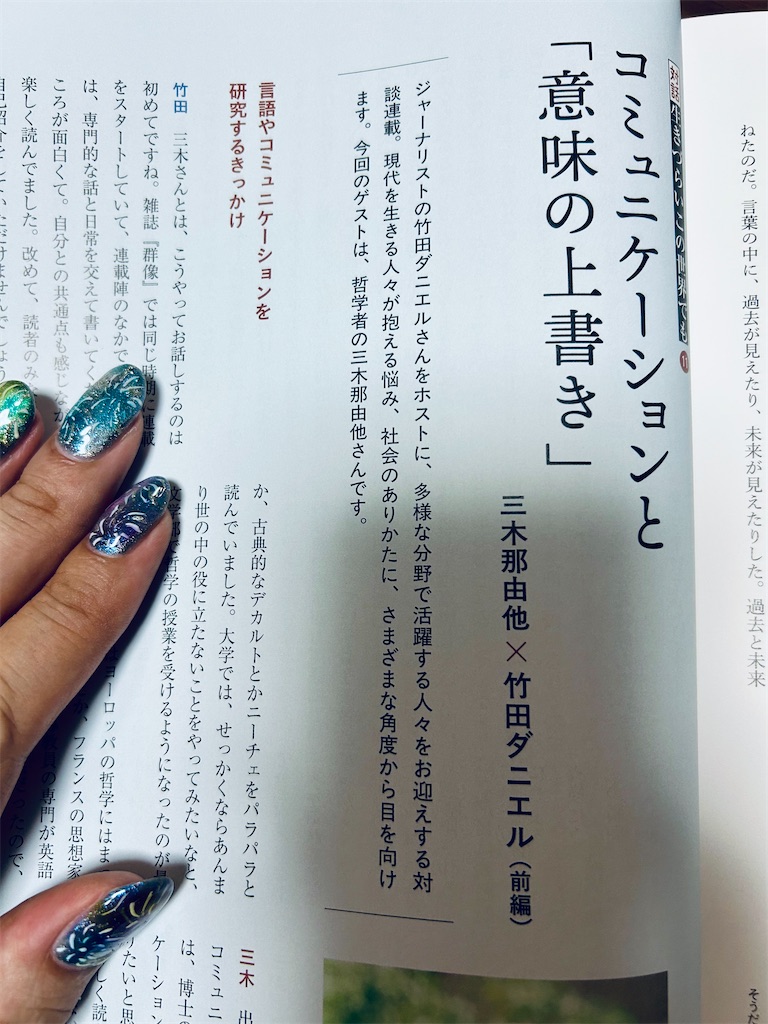 ねたのだ。言葉の中に、過去が見えたり、未来が見えたりした。過去と未来
そうだ
対談 生きづらいこの世界でも 11
コミュニケーションと
「意味の上書き」
三木那由他×竹田ダニエル(前編)
ジャーナリストの竹田ダニエルさんをホストに、多様な分野で活躍する人々をお迎えする対
談連載。現代を生きる人々が抱える悩み、社会のありかたに、さまざまな角度から目を向け
ます。今回のゲストは、哲学者の三木那由他さんです。
言語やコミュニケーションを
研究するきっかけ
竹田 三木さんとは、こうやってお話しするのは
初めてですね。雑誌『群像』では同じ時期に連載
をスタートしていて、連載陣のなかで
は、専門的な話と日常を交えて書いてく
ころが面白くて。自分との共通点も感じなが
楽しく読んでました。改めて、読者のみな
自己紹介をしていただけませんでしょう
か、古典的なデカルトとかニーチェをパラパラと
読んでいました。大学では、せっかくならあんま
り世の中の役に立たないことをやってみたいなと、
文学部で哲学の授業を受けるようになったのが
ヨーロッパの哲学にはまっ
か、フランスの思想家
教員の専門が英語
ったので、
三木 出
コミュニ
は、博士の
ケーション
りたいと思
しく読